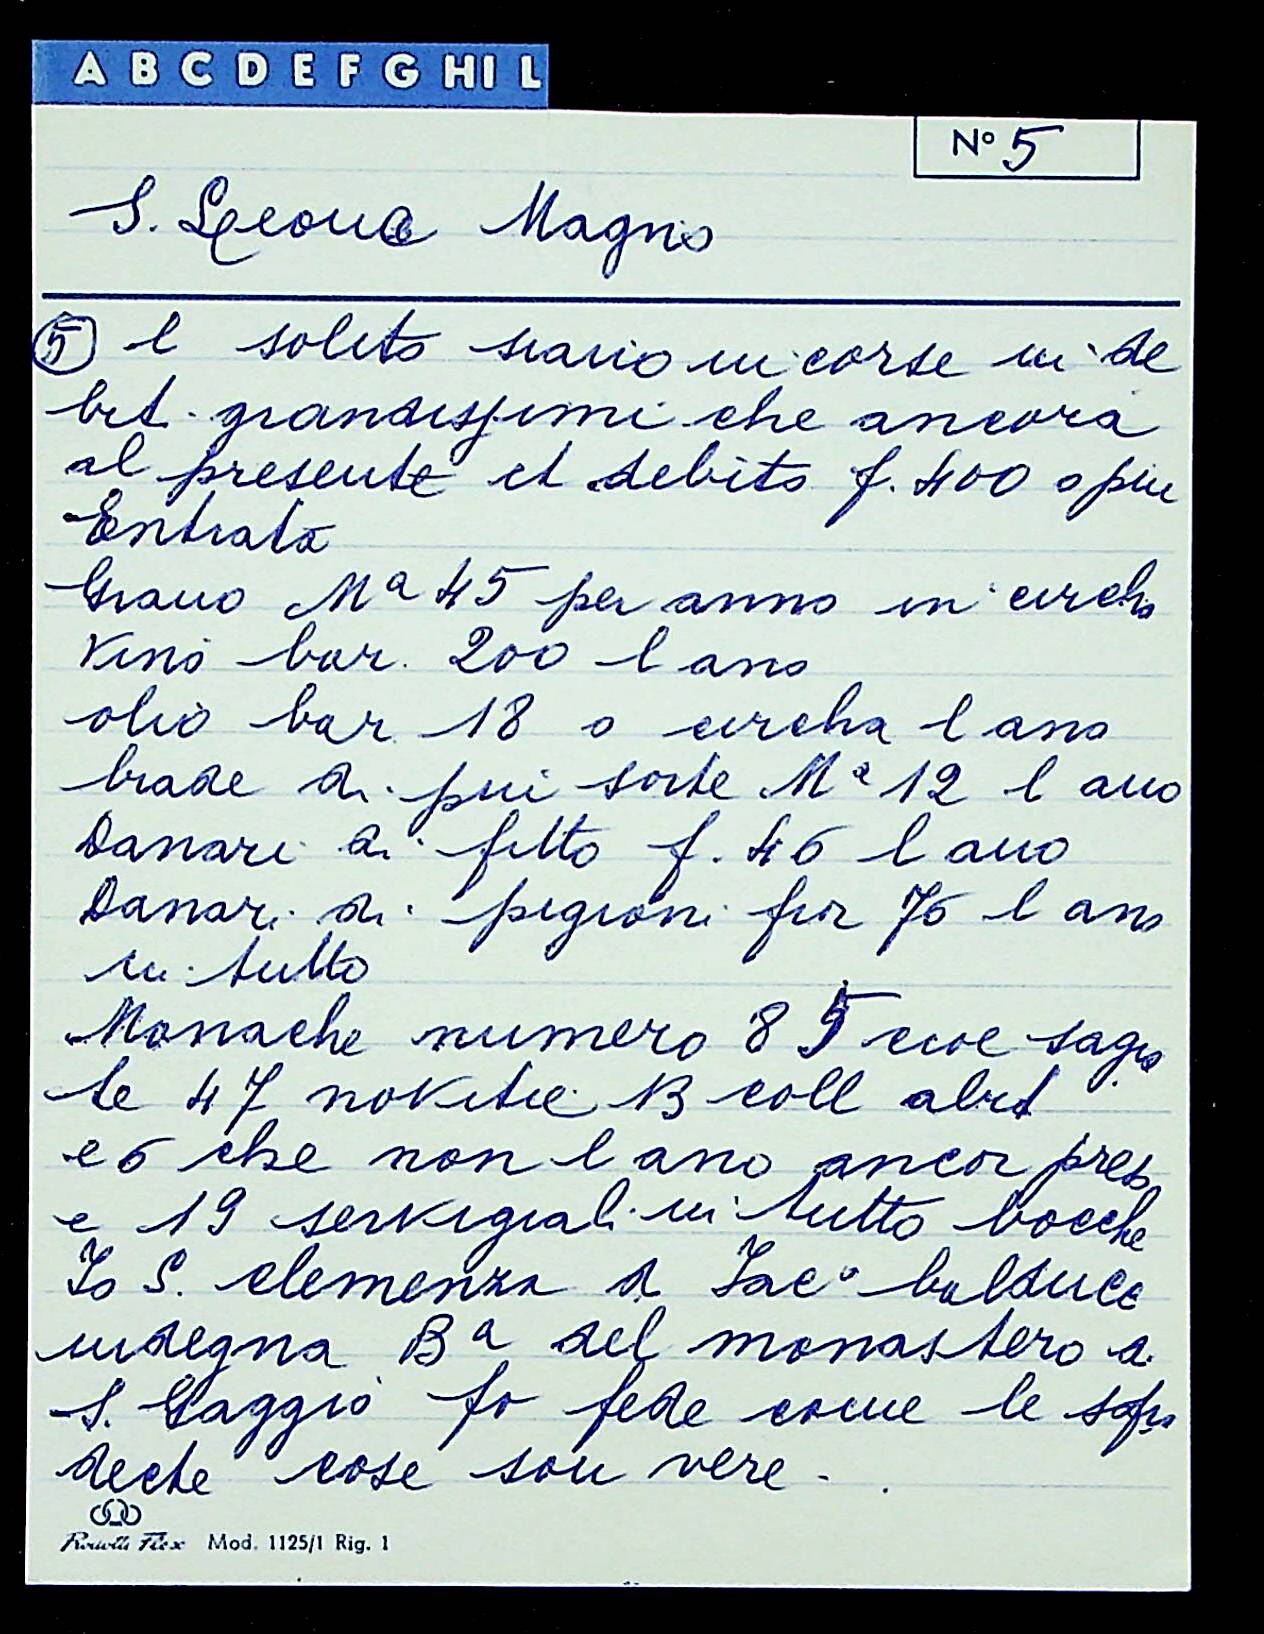 A B C D E F G HI L
Nº 5
S. Leone Magno
5 l solito siano in corse in de
bit grandissimi che ancora
al presente et debito f. 400 o piu
Entrata
Grano Mª 45 per anno in circho
Vino bar. 200 l ano
olio bar 18 o circha l ano
biade di piu sorte Mª 12 l ano
Danari di fitto f. 46 l ano
Danari di pigioni fior 76 l ano
in tutto
Monache numero 85 cioe sagra
te 47 novitie 13 coll abit
e 6 che non l ano ancor preso
e 19 servigiali in tutto bocche
Io S. clemenza di Jacº balducci
indegna Bª del monastero di
S. Gaggio fo fede come le sopra
decte cose son vere.
Mod. 1125/1 Rig. 1